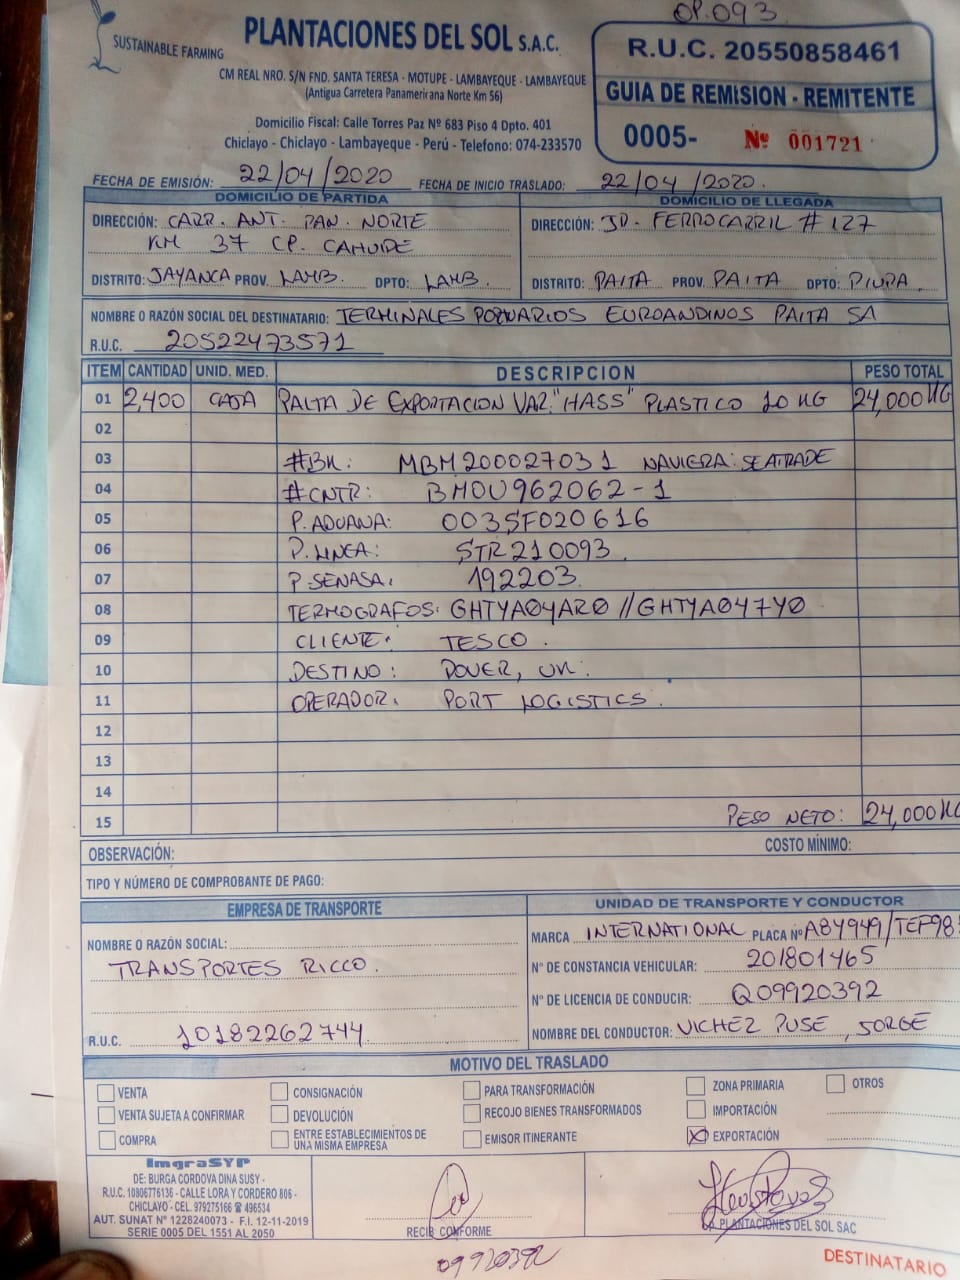 OP.093
SUSTAINABLE FARMING
PLANTACIONES DEL SOL S.A.C.
CM REAL NRO. S/N FND. SANTA TERESA - MOTUPE - LAMBAYEQUE - LAMBAYEQUE
(Antigua Carretera Panamericana Norte Km 56)
Domicilio Fiscal: Calle Torres Paz Nº 683 Piso 4 Dpto. 401
Chiclayo - Chiclayo - Lambayeque - Perú - Telefono: 074-233570
R.U.C. 20550858461
GUIA DE REMISION - REMITENTE
0005- Nº 001721
FECHA DE EMISIÓN: 22/04/2020 FECHA DE INICIO TRASLADO: 22/04/2020.
DOMICILIO DE PARTIDA
DIRECCIÓN: CARR. ANT. PAN. NORTE
KM 37 CP. CAHUIDE
DISTRITO: JAYANCA PROV. LAMB. DPTO: LAMB.
DOMICILIO DE LLEGADA
DIRECCIÓN: JD. FERROCARRIL # 127
DISTRITO: PAITA PROV. PAITA DPTO: PIURA.
NOMBRE O RAZÓN SOCIAL DEL DESTINATARIO: TERMINALES PORUARIOS EUROANDINOS PAITA SA
R.U.C. 20522473571
ITEM CANTIDAD UNID. MED. DESCRIPCION PESO TOTAL
01 2,400 CAJA PALTA DE EXPORTACION VAR."HASS" PLASTICO 10 KG 24,000KG
02
03 #BK: MBM200027031 NAVIERA: SEATRADE
04 #CNTR: BMOU962062-1
05 P. ADUANA: 003SF020616
06 P. LINEA: STR210093
07 P. SENASA: 192203
08 TERMOGRAFOS: GHTYA04AR0 //GHTYA047Y0
09 CLIENTE: TESCO.
10 DESTINO: DOVER, UK.
11 OPERADOR: PORT LOGISTICS.
12
13
14
15 PESO NETO: 24,000KG
OBSERVACIÓN: COSTO MÍNIMO:
TIPO Y NÚMERO DE COMPROBANTE DE PAGO:
EMPRESA DE TRANSPORTE
NOMBRE O RAZÓN SOCIAL:
TRANSPORTES RICCO.
R.U.C. 10182262744
UNIDAD DE TRANSPORTE Y CONDUCTOR
MARCA INTERNATIONAL PLACA Nº A84949/TEF98
Nº DE CONSTANCIA VEHICULAR: 201801465
Nº DE LICENCIA DE CONDUCIR: Q09920392
NOMBRE DEL CONDUCTOR: VICHEZ PUSE, JORGE
MOTIVO DEL TRASLADO
VENTA CONSIGNACIÓN PARA TRANSFORMACIÓN ZONA PRIMARIA OTROS
VENTA SUJETA A CONFIRMAR DEVOLUCIÓN RECOJO BIENES TRANSFORMADOS IMPORTACIÓN
COMPRA ENTRE ESTABLECIMIENTOS DE UNA MISMA EMPRESA EMISOR ITINERANTE X EXPORTACIÓN
ImgraSYP
DE: BURGA CORDOVA DINA SUSY -
R.U.C. 10806776136 - CALLE LORA Y CORDERO 806 -
CHICLAYO - CEL. 979275166 ☎ 496534
AUT. SUNAT Nº 1228240073 - F.I. 12-11-2019
SERIE 0005 DEL 1551 AL 2050
RECIBÍ CONFORME
09920392
PLANTACIONES DEL SOL SAC
DESTINATARIO